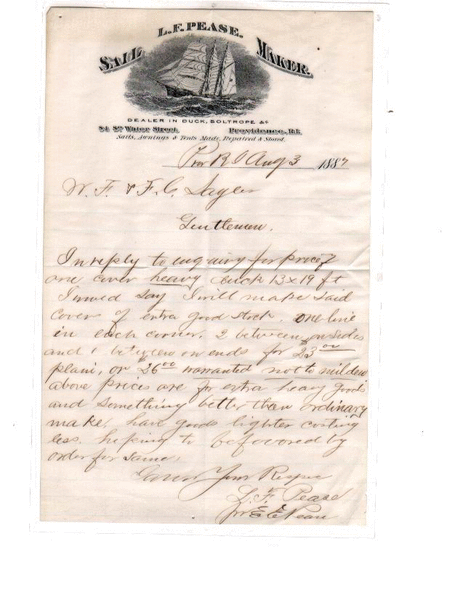 L. F. PEASE.
SAIL MAKER.
DEALER IN DUCK, BOLTROPE &c
Water Street, Providence, R.I.
Sails, Awnings & Tents Made, Repaired &
Prov R I Aug 3 1887
W. F. & F. C. Sayles
Gentlemen.
In reply to enquiry for price of
one cover heavy duck 13 x 19 ft
I would say I will make said
cover of extra good stock. one line
in each corner. 2 between on sides
and 1 between on ends for 23 00
plain, or 26 00 warranted not to mildew
above prices are for extra heavy goods
and something better than ordinary
make. have goods lighter costing
less. hoping to be favored by
order for same
Yours Respec
L. F. Pease
Pease